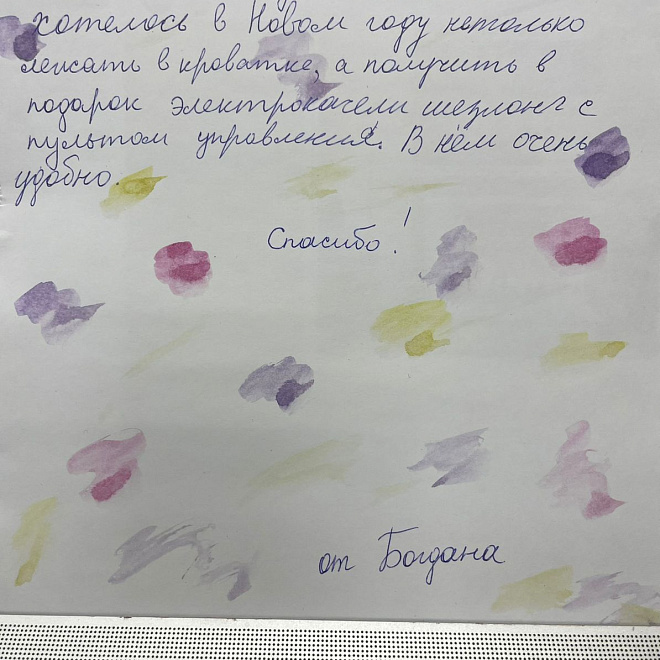 хотелось в Новом году нетолько
лежать в кроватке, а получить в
подарок электрокачели шезлонг с
пультом управления. В нём очень
удобно.
Спасибо!
от Богдана